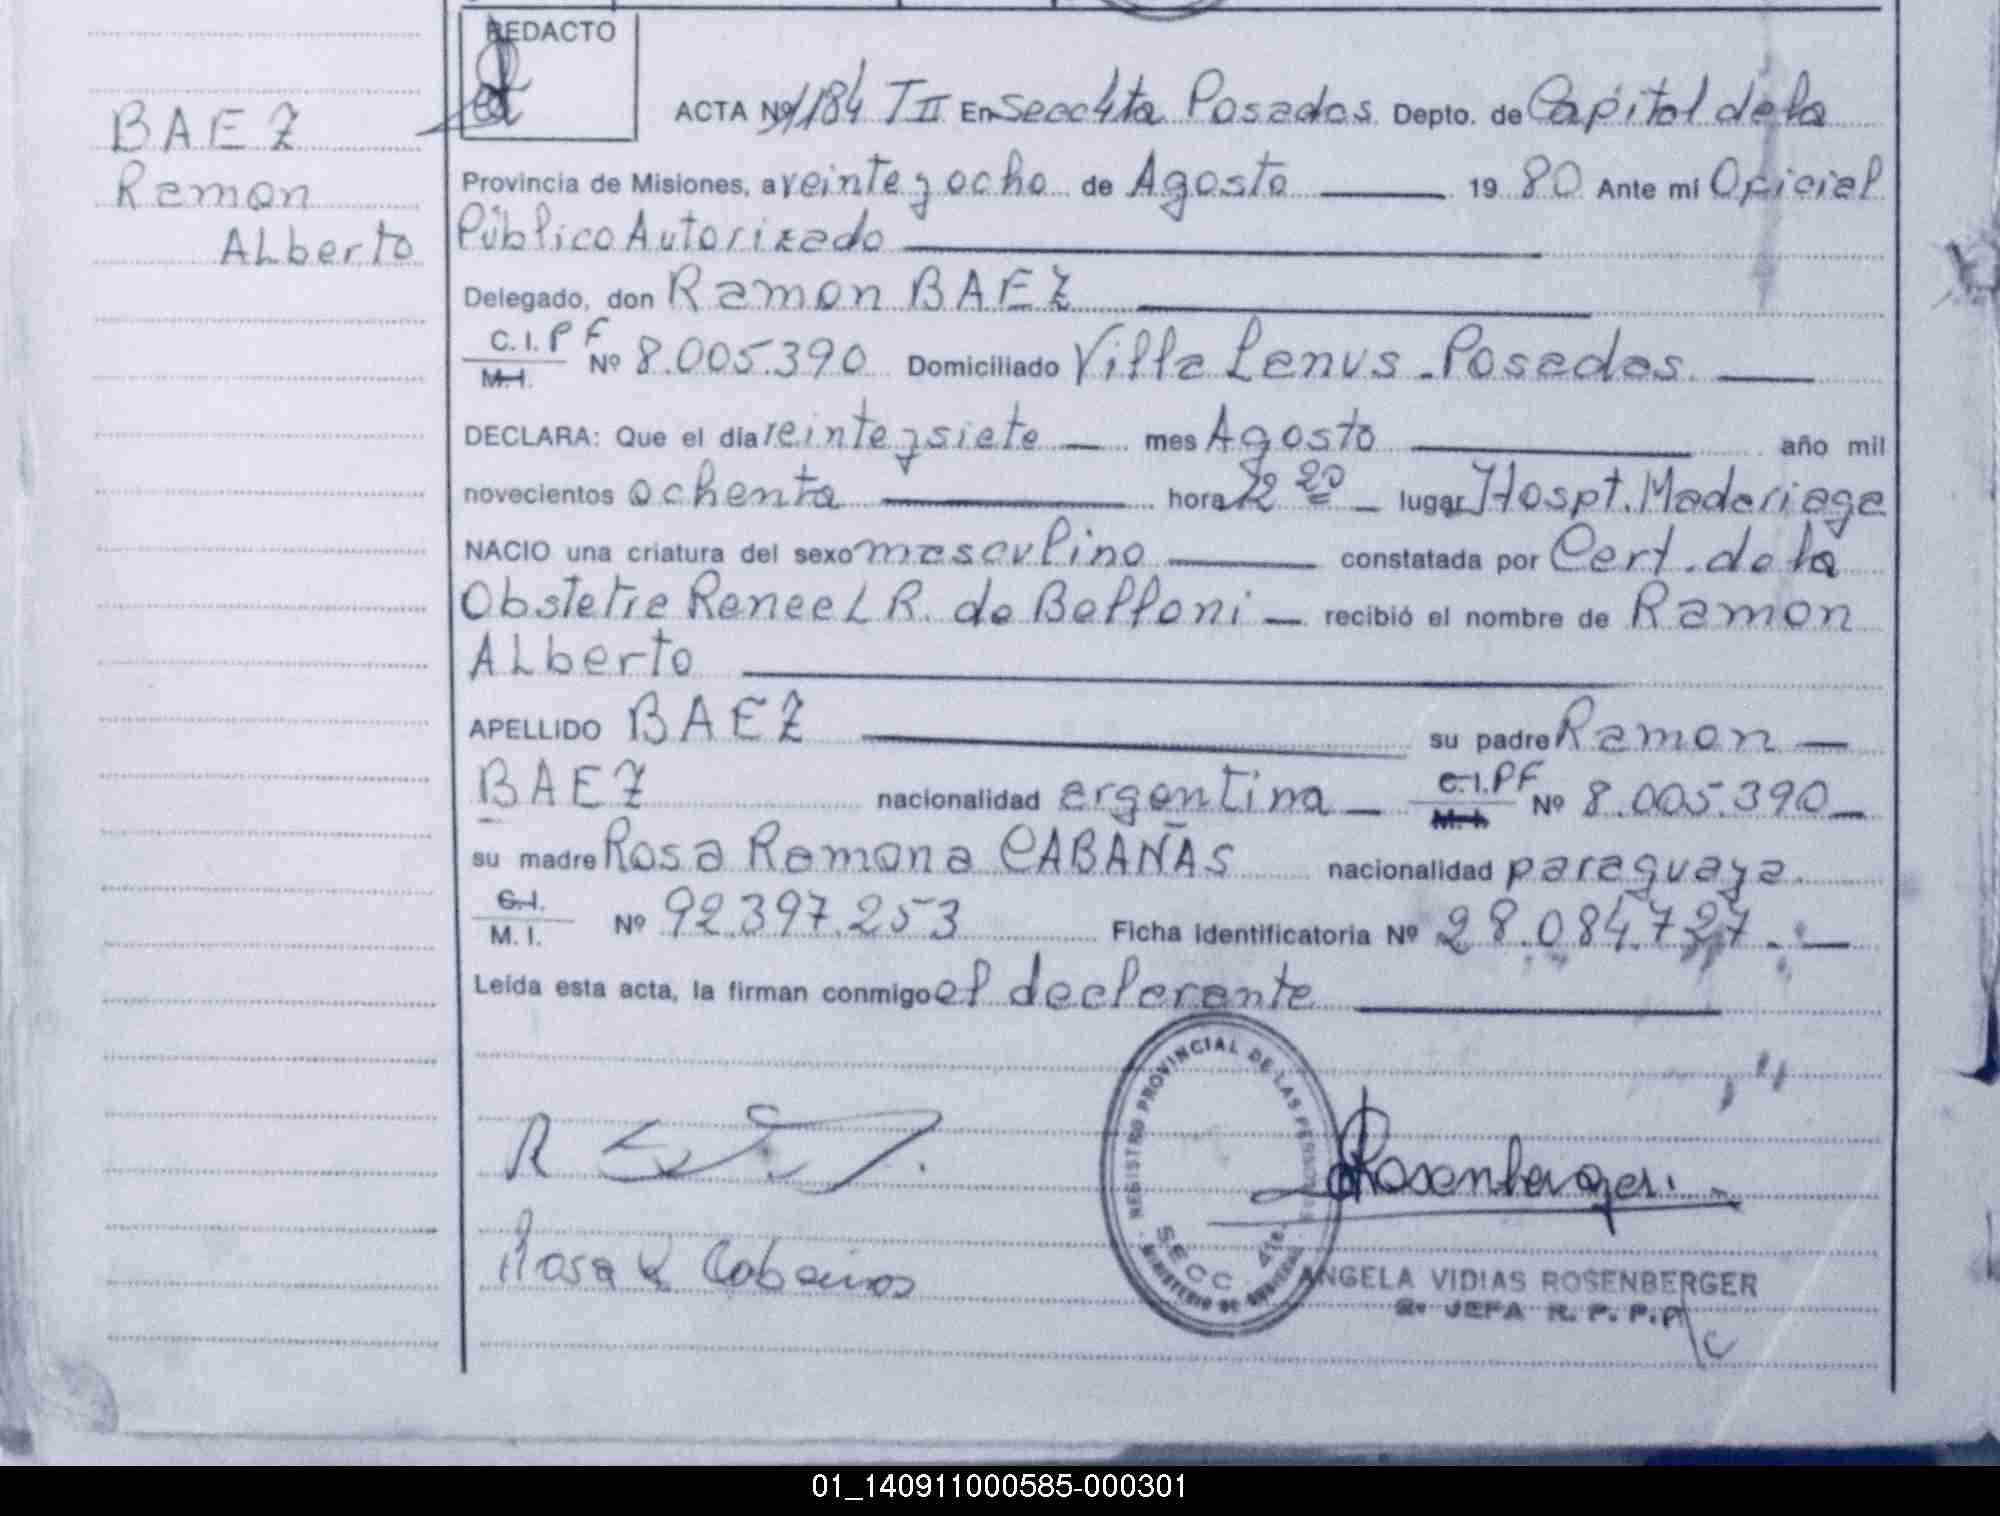 REDACTO
BAEZ
Ramon
ALberto
ACTA Nº 1184 T II En Secc 4ta Posadas Depto. de Capital de la
Provincia de Misiones, a veinte y ocho de Agosto 1980 Ante mi Oficial
Público Autorizado
Delegado, don Ramon BAEZ
C.I.PF
M.I. Nº 8.005.390 Domiciliado Villa Lanus - Posadas.
DECLARA: Que el día veinte y siete mes Agosto año mil
novecientos ochenta hora 12 20 lugar Hospt. Madariaga
NACIO una criatura del sexo masculino constatada por Cert. de la
Obstetre Renee L R. de Belloni recibió el nombre de Ramon
ALberto
APELLIDO BAEZ su padre Ramon
BAEZ nacionalidad argentina C.I.PF
M.I. Nº 8.005.390
su madre Rosa Ramona CABAÑAS nacionalidad paraguaya.
C.I.
M.I. Nº 92.397.253 Ficha Identificatoria Nº 28.084.727.-
Leída esta acta, la firman conmigo el declarante
REGISTRO PROVINCIAL DE LAS PERSONAS
SECC. 4ta.
MINISTERIO DE GOBIERNO
Rosenberger.
Rosa R Cabañas
ANGELA VIDIAS ROSENBERGER
2º JEFA R. P. P. P.
01_140911000585-000301